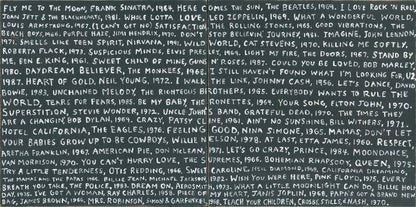 FLY ME TO THE MOON, FRANK SINATRA, 1964. HERE COMES THE SUN, THE BEATLES, 1969. I LOVE ROCK N' ROLL,
JOAN JETT & THE BLACKHEARTS, 1981. WHOLE LOTTA LOVE, LED ZEPPELIN, 1969. WHAT A WONDERFUL WORLD,
LOUIS ARMSTRONG, 1967. (I CAN'T GET NO) SATISFACTION, THE ROLLING STONES, 1965. GOOD VIBRATIONS, THE
BEACH BOYS, 1966. PURPLE HAZE, JIMI HENDRIX, 1970. DON'T STOP BELIEVIN', JOURNEY, 1981. IMAGINE, JOHN LENNON,
1971. SMELLS LIKE TEEN SPIRIT, NIRVANA, 1991. WILD WORLD, CAT STEVENS, 1970. KILLING ME SOFTLY,
ROBERTA FLACK, 1973. SUSPICIOUS MINDS, ELVIS PRESLEY, 1969. LIGHT MY FIRE, THE DOORS, 1967. STAND BY
ME, BEN E. KING, 1961. SWEET CHILD OF MINE, GUNS N' ROSES, 1987. COULD YOU BE LOVED, BOB MARLEY,
1980. DAYDREAM BELIEVER, THE MONKEES, 1967. I STILL HAVEN'T FOUND WHAT I'M LOOKING FOR, U2,
1987. HEART OF GOLD, NEIL YOUNG, 1972. I WALK THE LINE, JOHNNY CASH, 1956. LET'S DANCE, DAVID
BOWIE, 1983. UNCHAINED MELODY, THE RIGHTEOUS BROTHERS, 1965. EVERYBODY WANTS TO RULE THE
WORLD, TEARS FOR FEARS, 1985. BE MY BABY, THE RONETTES, 1964. YOUR SONG, ELTON JOHN, 1970.
SUPERSTITION, STEVIE WONDER, 1972. UNCLE JOHN'S BAND, GRATEFUL DEAD, 1970. THE TIMES THEY
ARE A CHANGIN', BOB DYLAN, 1964. CRAZY, PATSY CLINE, 1961. AIN'T NO SUNSHINE, BILL WITHERS, 1971.
HOTEL CALIFORNIA, THE EAGLES, 1976. FEELING GOOD, NINA SIMONE, 1965. MAMAS, DON'T LET
YOUR BABIES GROW UP TO BE COWBOYS, WILLIE NELSON, 1978. AT LAST, ETTA JAMES, 1960. RESPECT,
ARETHA FRANKLIN, 1967. AMERICAN PIE, DON MCLEAN, 1971. LET'S GO CRAZY, PRINCE, 1984. MOONDANCE,
VAN MORRISON, 1970. YOU CAN'T HURRY LOVE, THE SUPREMES, 1966. BOHEMIAN RHAPSODY, QUEEN, 1975.
TRY A LITTLE TENDERNESS, OTIS REDDING, 1966. SWEET CAROLINE, NEIL DIAMOND, 1969. CALIFORNIA DREAMING,
THE MAMAS AND THE PAPAS 1965. BILLIE JEAN, MICHAEL JACKSON, 1982. WISH YOU WERE HERE, PINK FLOYD, 1975. EVERY
BREATH YOU TAKE, THE POLICE, 1983. DREAM ON, AEROSMITH, 1973. WHAT A LITTLE MOONLIGHT CAN DO, BILLIE HOLI
DAY, 1935. I'VE GOT A WOMAN, RAY CHARLES, 1954. PIECE OF MY HEART, JANIS JOPLIN, 1968. PAPA'S GOT A BRAND NEW
BAG, JAMES BROWN, 1965. MRS. ROBINSON, SIMON & GARFUNKEL, 1968. TEACH YOUR CHILDREN, CROSBY, STILLS, & NASH, 1970.